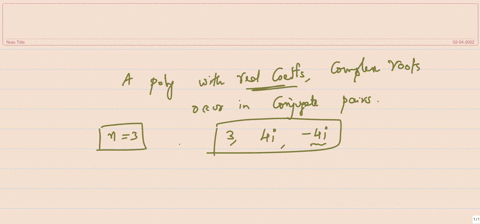 Note Title
A poly with real coeffs, Complex roots
occur in Conjugate pairs.
n=3 3, 4i, -4i